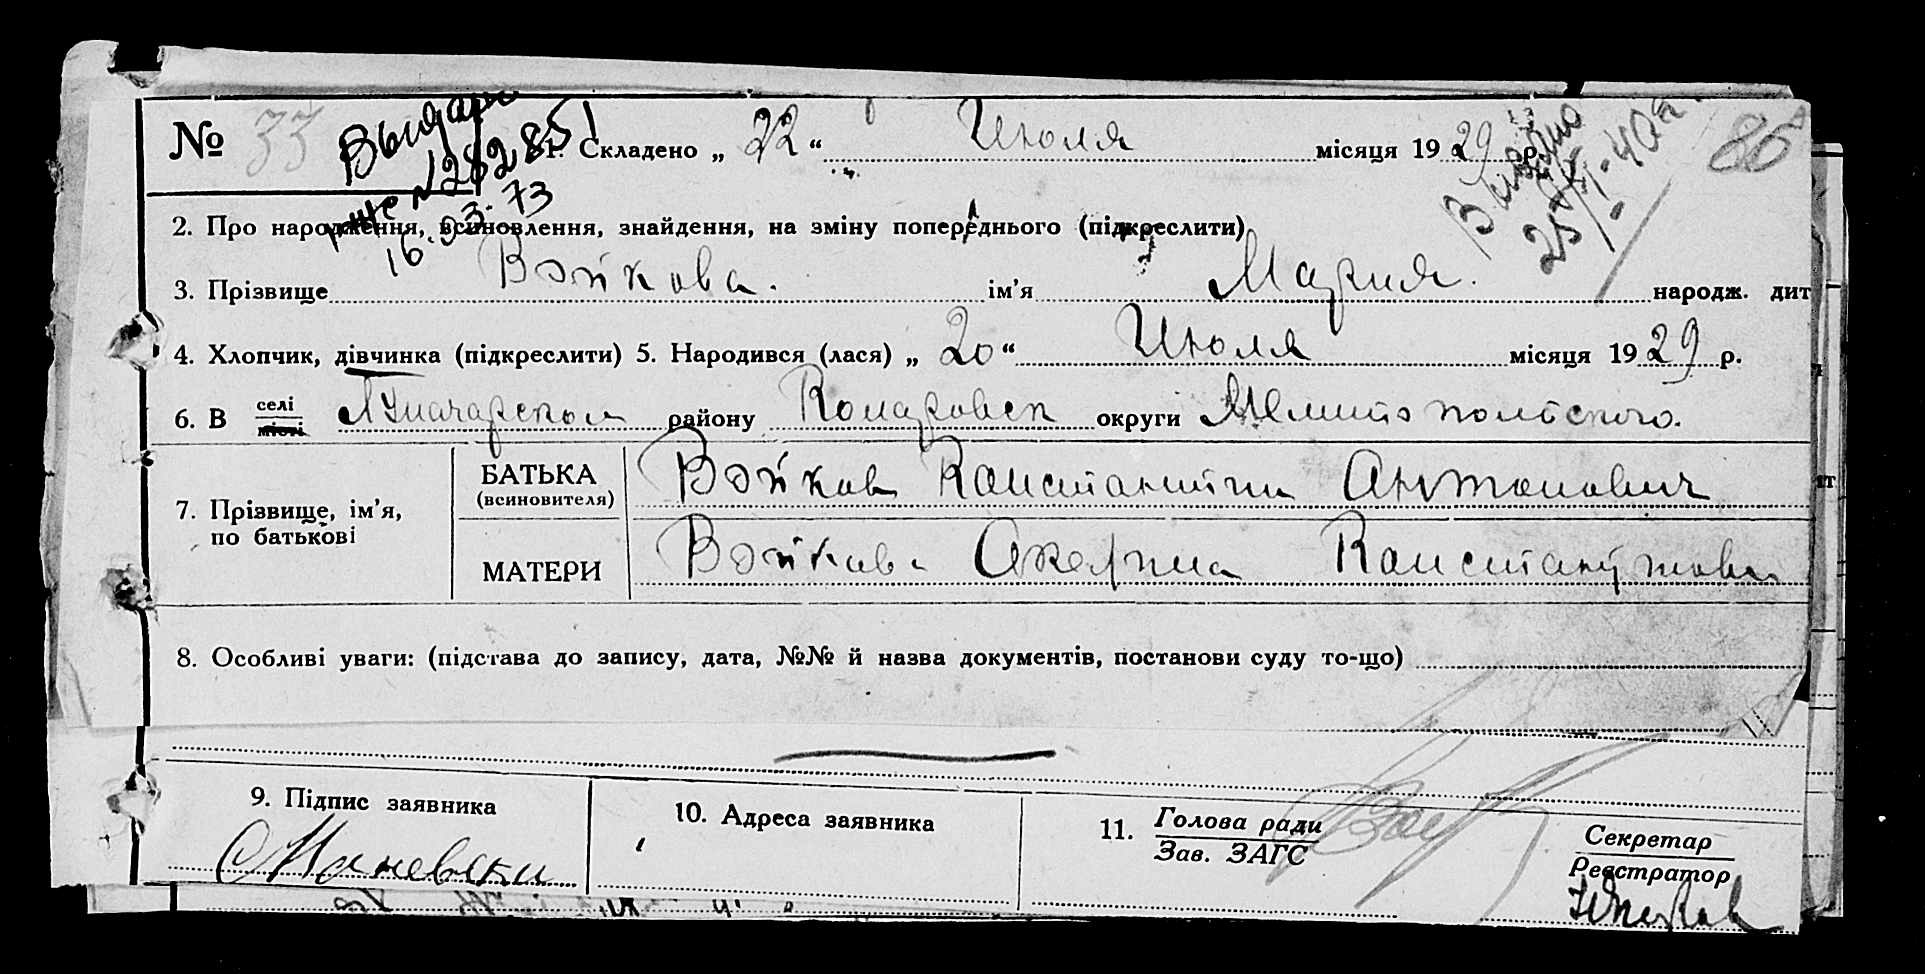 № 33 1. Складено „ 22 “ Июля місяця 19 29 р. 86
Выдано
№ 282851
16-03-73
2. Про народження, всиновлення, знайдення, на зміну попереднього (підкреслити)
3. Прізвище Войкова. ім'я Мария. народж. дит
4. Хлопчик, дівчинка (підкреслити) 5. Народився (лася) „ 20 “ Июля місяця 19 29 р.
6. В селі місті району округи Мелитопольского.
7. Прізвище, ім'я, по батькові
БАТЬКА (всиновителя) Войков Константин Антонович
МАТЕРИ Войкова Константиновна
8. Особливі уваги: (підстава до запису, дата, №№ й назва документів, постанови суду то-що)
9. Підпис заявника
10. Адреса заявника
11. Голова ради
Зав. ЗАГС
Секретар
Реєстратор